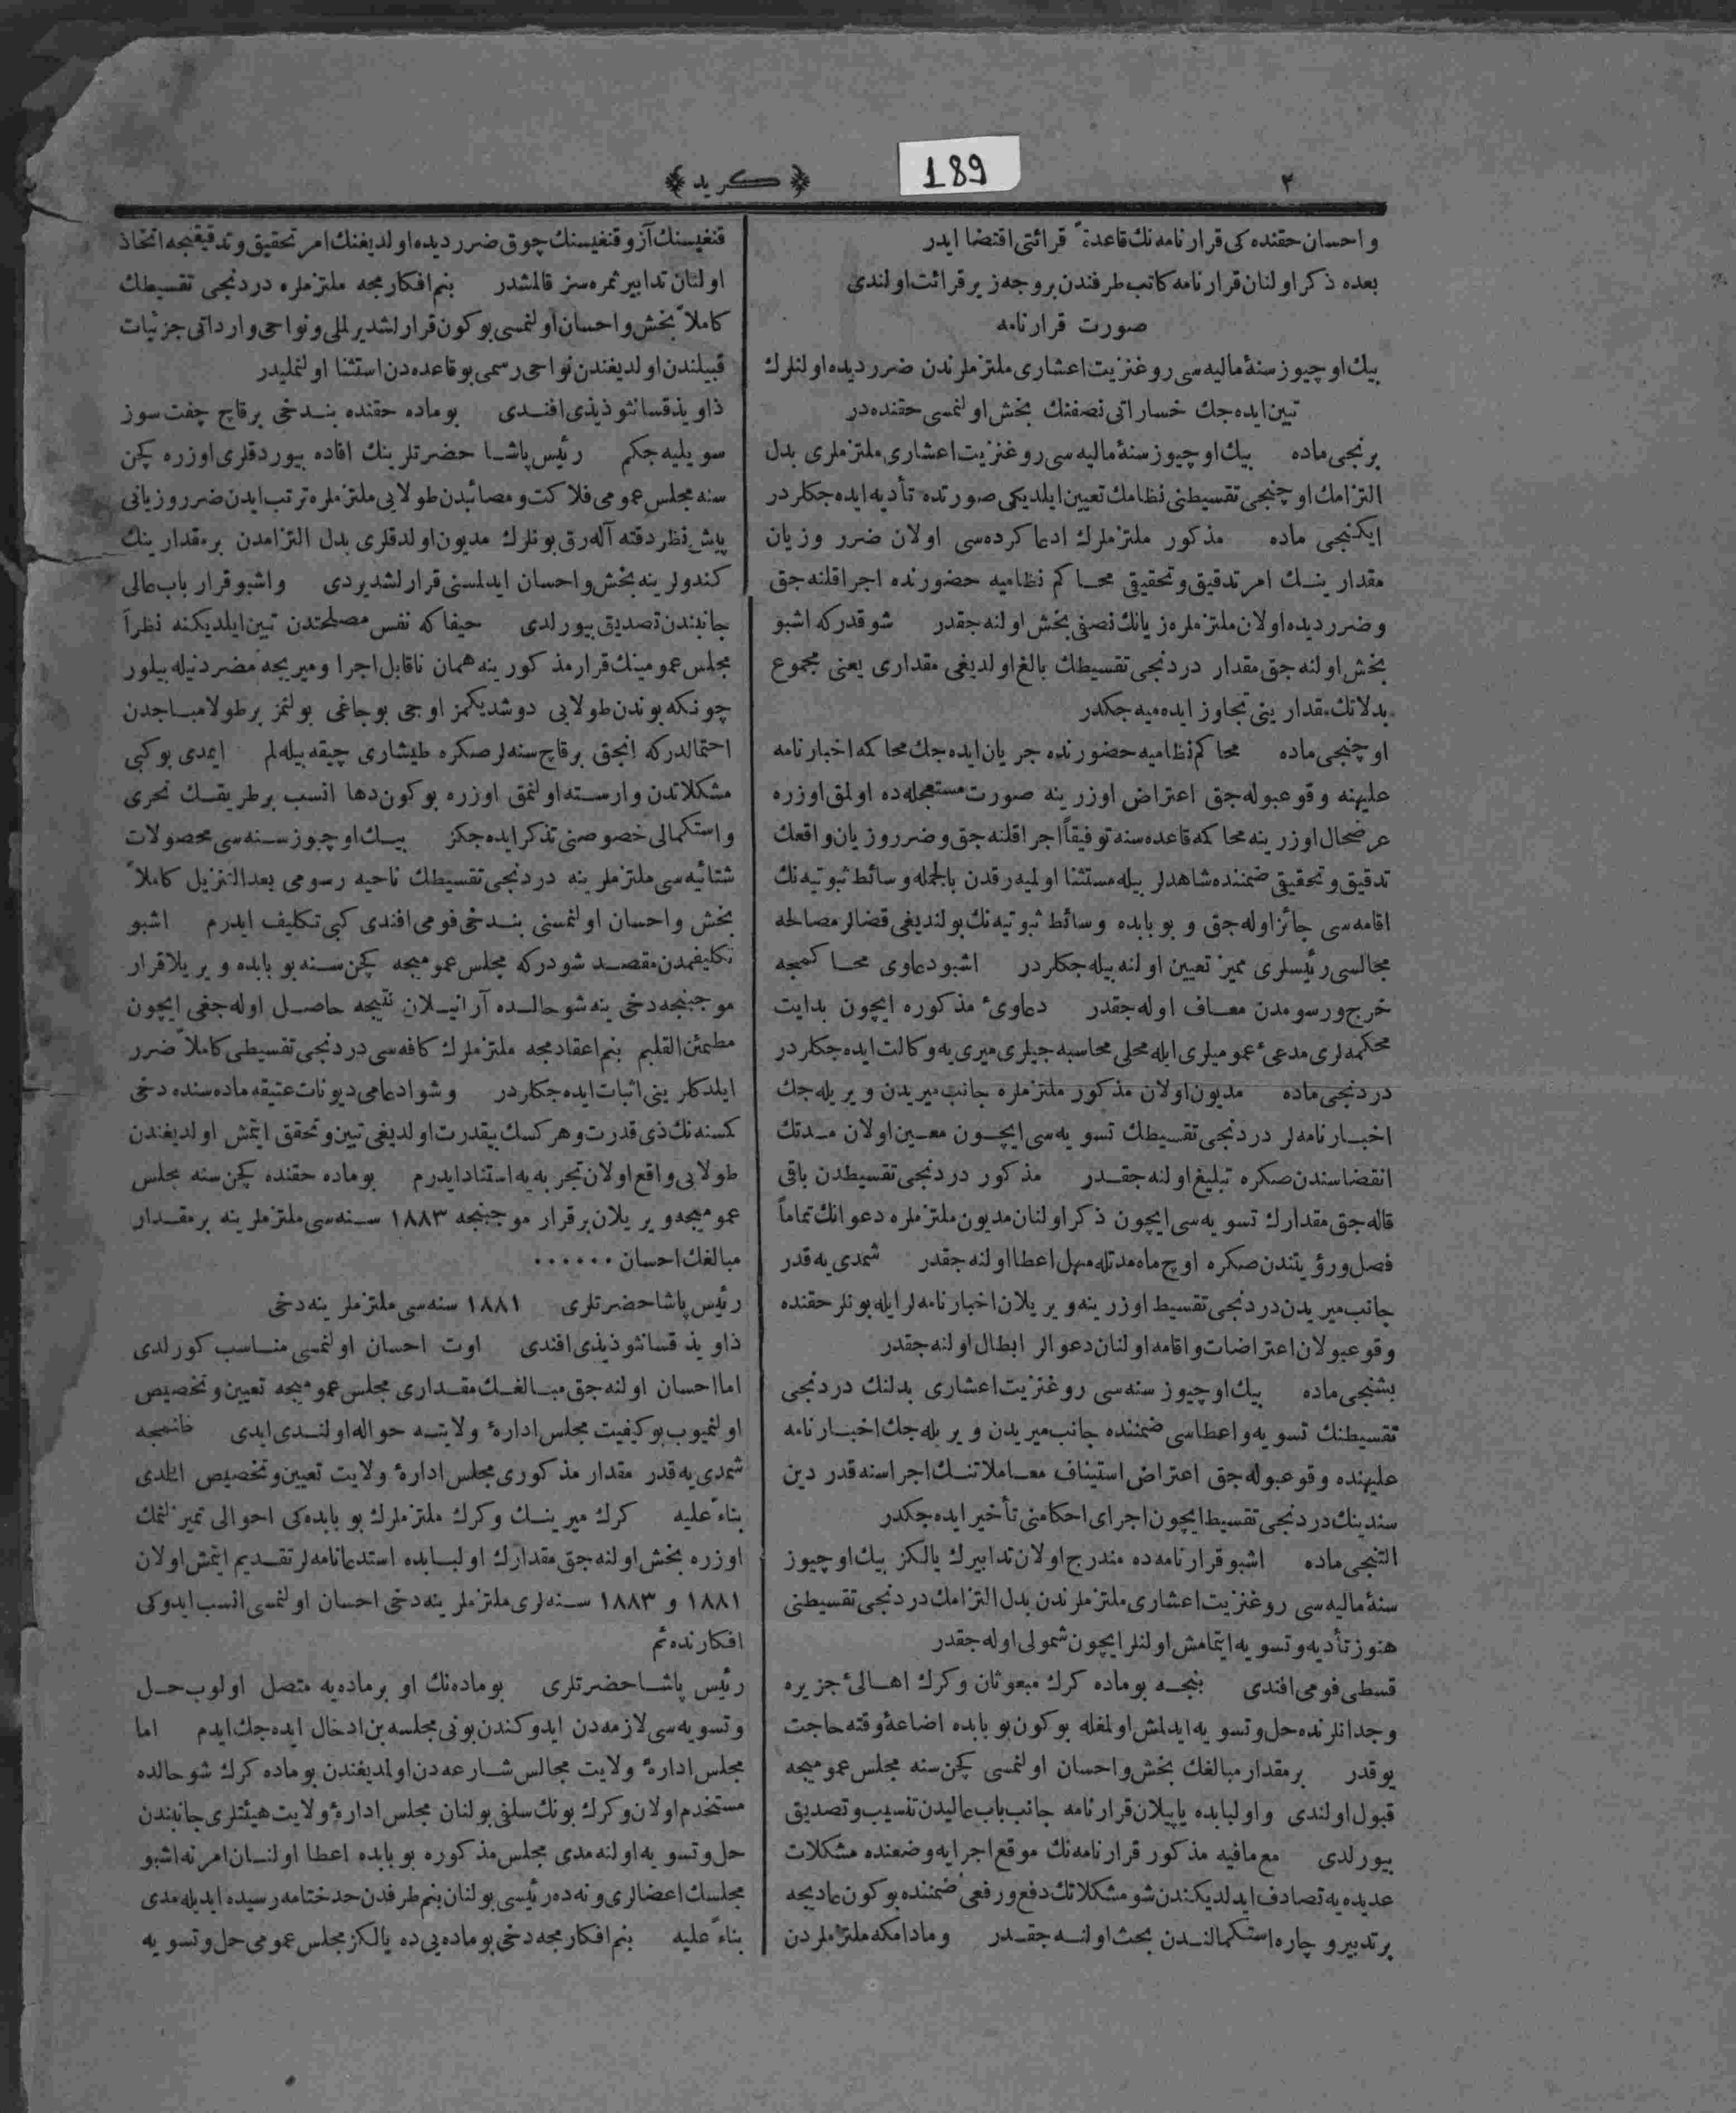 ٢
189
﴿ كريد ﴾
و احسان حقنده كی قرارنامه نك قاعدةً قرائتی اقتضا ایدر
بعده ذكر اولنان قرارنامه كاتب طرفندن بروجه زیر قرائت اولندی
صورت قرارنامه
بیك اوچیوز سنهٔ مالیه سی روغن زیت اعشاری ملتزملرندن ضرر دیده اولنلرك
تبین ایده جك خساراتی نصفنك بخش اولنمسی حقنده در
برنجی ماده بیك اوچیوز سنهٔ مالیه سی روغن زیت اعشاری ملتزملری بدل
التزامك اوچنجی تقسیطنی نظامك تعیین ایلدیكی صورتده تأدیه ایده جكلردر
ایكنجی ماده مذكور ملتزملرك ادعا كرده سی اولان ضرر وزیان
مقدارینـك امر تدقیق و تحقیقی محـاكم نظامیه حضورنده اجرا قلنه جق
و ضرر دیده اولان ملتزملره زیانك نصفی بخش اولنه جقدر شو قدركه اشبو
بخش اولنه جق مقدار دردنجی تقسیطك بالغ اولدیغی مقداری یعنی مجموع
بدلاتك مقدارینی تجاوز ایده میه جكدر
اوچنجی ماده محاكم نظامیه حضورنده جریان ایده جك محاكمه اخبارنامه
علیهنه وقوعبوله جق اعتراض اوزرینه صورت مستعجله ده اولمق اوزره
عرضحال اوزرینه محاكمه قاعده سنه توفیقاً اجرا قلنه جق و ضرر وزیان واقعك
تدقیق و تحقیقی ضمننده شاهدلر بیله مستثنا اولمیه رقدن بالجمله وسائط ثبوتیه نك
اقامه سی جائز اوله جق و بو بابده وسائط ثبوتیه نك بولندیغی قضالر مصالحه
مجالسی رئیسلری ممیز تعیین اولنه بیله جكلردر اشبو دعاوی محـاكمجه
خرج و رسومدن معـاف اوله جقدر دعاوئ مذكوره ایچون بدایت
محكمه لری مدعئ عمومیلری ایله محلی محاسبه جیلری میری یه وكالت ایده جكلردر
دردنجی ماده مدیون اولان مذكور ملتزملره جانب میریدن ویریله جك
اخبـارنامه لر دردنجی تقسیطك تسویه سی ایچـون معـین اولان مـدتك
انقضاسندن صكره تبلیغ اولنه جقـدر مذكور دردنجی تقسیطدن باقی
قاله جق مقدارك تسویه سی ایچون ذكر اولنان مدیون ملتزملره دعوانك تماماً
فصل و رؤیتندن صكره اوچ ماه مدتله مهل اعطا اولنه جقدر شمدی یه قدر
جانب میریدن دردنجی تقسیط اوزرینه ویریلان اخبارنامه لر ایله بونلر حقنده
وقوعبولان اعتراضات و اقامه اولنان دعوالر ابطال اولنه جقدر
بشنجی ماده بیك اوچیوز سنه سی روغن زیت اعشاری بدلنك دردنجی
تقسیطنك تسویه و اعطاسی ضمننده جانب میریدن ویریله جك اخبـارنامه
علیهنده وقوعبوله جق اعتراض استیناف معـاملاتنـك اجراسنه قدر دین
سندینك دردنجی تقسیط ایچون اجرای احكامنی تأخیر ایده جكدر
التنجی ماده اشبو قرارنامه ده مندرج اولان تدابیرك یالكز بیك اوچیوز
سنهٔ مالیه سی روغن زیت اعشاری ملتزملرندن بدل التزامك دردنجی تقسیطنی
هنوز تأدیه و تسویه ایتمامش اولنلر ایچون شمولی اوله جقدر
قسطی فومی افندی بنجـه بو ماده كرك مبعوثان و كرك اهـالئ جزیره
وجدانلرنده حل و تسویه ایدلمش اولمغله بوكون بو بابده اضاعهٔ وقته حاجت
یوقدر برمقدار مبالغك بخش و احسان اولنمسی كچن سنه مجلس عمومیجه
قبول اولندی و اولبابده یاپیلان قرارنامه جانب باب عالیدن تنسیب و تصدیق
بیورلدی مع مافیه مذكور قرارنامه نك موقع اجرایه وضعنده مشكلات
عدیده یه تصادف ایدلدیكندن شو مشكلاتك دفع و رفعی ضمننده بوكون عادیجه
برتدبیر و چاره استكمالنـدن بحث اولنـه جقـدر و مادامكه ملتزملردن
قنغیسنك آز و قنغیسنك چوق ضرر دیده اولدیغنك امر تحقیق و تدقیقیجه اتخاذ
اولنان تدابیر ثمره سز قالمشدر بنم افكارمجه ملتزملره دردنجی تقسیطك
كاملاً بخش و احسان اولنمسی بوكون قرارلشدیرلملی و نواحی وارداتی جزئیات
قبیلندن اولدیغندن نواحی رسمی بو قاعده دن استثنا اولنملیدر
ذاویذقسانئوذیذی افنـدی بو ماده حقنده بنـدخی برقاچ چفت سوز
سویلیه جكم رئیس پاشـا حضرتلرینك افاده بیوردقلری اوزره كچن
سنه مجلس عمومی فلاكت و مصائبدن طولایی ملتزملره ترتب ایدن ضرر وزیانی
پیش نظر دقته آله رق بونلرك مدیون اولدقلری بدل التزامدن برمقدارینك
كندولرینه بخش و احسان ایدلمسنی قرارلشدیردی و اشبو قرار باب عالی
جانبندن تصدیق بیورلدی حیفا كه نفس مصلحتدن تبین ایلدیكنه نظراً
مجلس عمومینك قرار مذكورینه همان ناقابل اجرا و میریجه مضر دنیله بیلور
چونكه بوندن طولایی دوشدیكمز اوجی بوجاغی بولنمز برطولامبـاجدن
احتمالدركه انجق برقاچ سنه لر صكره طیشاری چیقه بیله لم ایمدی بو كبی
مشكلاتدن وارسـته اولنمق اوزره بوكون دها انسب برطریقـك تحری
و استكمالی خصوصنی تذكر ایده جكز بیـك اوچیوز سـنه سی محصولات
شتائیه سی ملتزملرینه دردنجی تقسیطك ناحیه رسومی بعد التنزیل كاملاً
بخش و احسان اولنمسنی بنـدخی فومی افندی كبی تكلیف ایدرم اشبو
تكلیفمدن مقصـد شودركه مجلس عمومیجه كچن سـنه بو بابده ویریلا قرار
موجبنجه دخی ینه شو حالـده آرانیـلان نتیجه حاصـل اوله جغی ایچون
مطمئن القلبم بنم اعتقادمجه ملتزملرك كافه سی دردنجی تقسیطی كاملاً ضرر
ایلدكلرینی اثبات ایده جكلردر و شو ادعامی دیونات عتیقه ماده سنده دخی
كمسنه نك ذی قدرت و هركسك بیقدرت اولدیغی تبین و تحقق ایتمش اولدیغندن
طولایی واقع اولان تجربه یه استنادا ایدرم بو ماده حقنده كچن سنه مجلس
عمومیجه ویریلان برقرار موجبنجه ١٨٨٣ سـنه سی ملتزملرینه برمقـدار
مبالغك احسان ......
رئیس پاشا حضرتلری ١٨٨١ سنه سی ملتزملرینه دخی
ذاویذقسانئوذیذی افندی اوت احسان اولنمسی منـاسب كورلدی
اما احسان اولنه جق مبـالغـك مقـداری مجلس عمومیجه تعیین و تخصیص
اولنمیوب بو كیفیت مجلس ادارهٔ ولایتـه حواله اولنـدی ایدی
شمدی یه قدر مقدار مذكوری مجلس ادارهٔ ولایت تعیین و تخصیص ایلدی
بناءً علیه كرك میرینـك و كرك ملتزملرك بو بابده كی احوالی تمیزلنمك
اوزره بخش اولنه جق مقدارك اولبـابده استدعانامه لر تقـدیم ایتمش اولان
١٨٨١ و ١٨٨٣ سـنه لری ملتزملرینه دخی احسان اولنمسی انسب ایدوكی
افكارنده ئم
رئیس پاشـا حضرتلری بو ماده نك او برماده یه متصل اولوب حـل
و تسویه سی لازمه دن ایدوكندن بونی مجلسه بن ادخال ایده جك ایدم اما
مجلس ادارهٔ ولایت مجالس شـارعه دن اولمدیغندن بو ماده كرك شو حالده
مستخدم اولان و كرك بونك سلفی بولنان مجلس ادارهٔ ولایت هیئتلری جانبندن
حل و تسویه اولنه مدی مجلس مذكوره بو بابده اعطا اولنـان امر نه اشبو
مجلسك اعضالری و نه ده رئیسی بولنان بنم طرفمدن حد ختامه رسیده ایدیله مدی
بناءً علیه بنم افكارمجه دخی بو ماده یی ده یالكز مجلس عمومی حل و تسویه